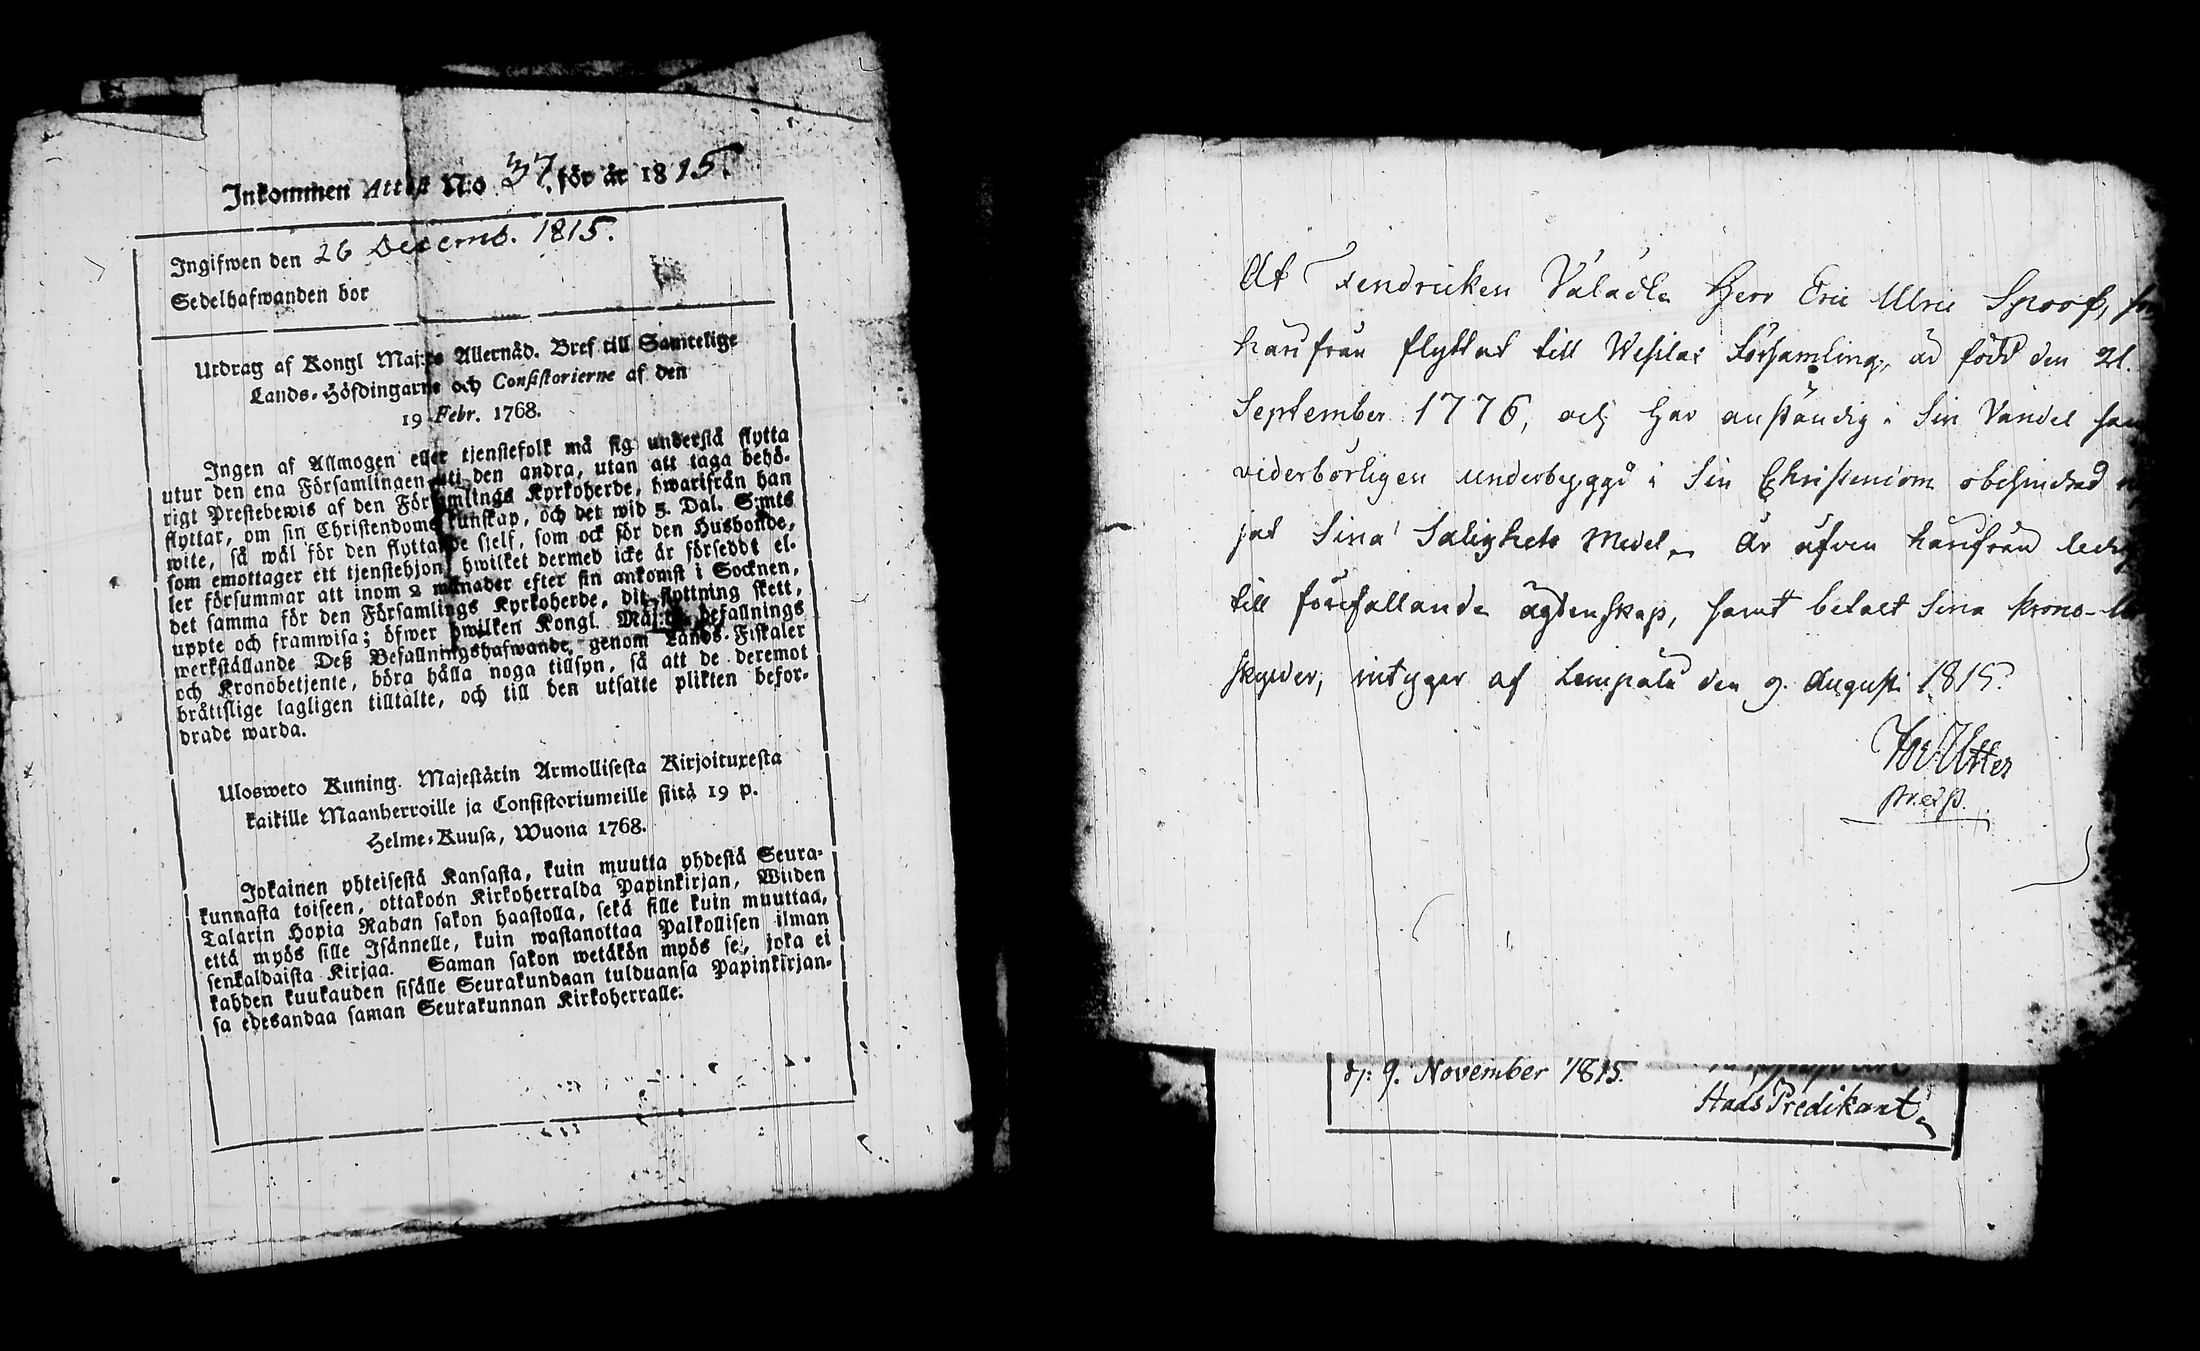 Inkommen Attest N:o 37. för år 1815.
Ingifwen den 26 Decemb. 1815.
Sedelhafwanden bor
Utdrag af Kongl Maj:ts Allernåd. Bref till Samtelige
Lands-Höfdingarne och Consistorierne af den
19 Febr. 1768.
Ingen af Allmogen eller tjenstefolk må sig understå flytta
utur den ena Församlingen uti den andra, utan att taga behö-
rigt Prestebewis af den Församlings Kyrkoherde, hwarifrån han
flyttar, om sin Christendoms kunskap, och det wid 5. Dal. S:mts
wite, så wäl för den flyttande sjelf, som ock för den Husbonde,
som emottager ett tjenstehjon, hwilket dermed icke är förseddt el-
ler försummar att inom 2 månader efter sin ankomst i Socknen,
det samma för den Församlings Kyrkoherde, dit flyttning skett,
uppte och framwisa; öfwer hwilken Kongl. Maj:ts befallnings
werkställande Deß Befallningshafwande, genom Lands-Fiskaler
och Kronobetjente, böra hålla noga tillsyn, så att de deremot
bråttslige lagligen tilltalte, och till den utsatte plikten befor-
drade warda.
Ulosweto Kuning. Majestätin Armollisesta Kirjoituxesta
kaikille Maanherroille ja Consistoriumeille siitä 19 p.
Helme-Kuusa, Wuona 1768.
Jokainen yhteisestä Kansasta, kuin muutta yhdestä Seura-
kunnasta toiseen, ottakoon Kirkoherralda Papinkirjan, Wiiden
Talarin Hopia Rahan sakon haastolla, sekä sille kuin muuttaa,
että myös sille Isännelle, kuin wastanottaa Palkollisen ilman
senkaldaista Kirjaa. Saman sakon wetäkön myös se, joka ei
kahden kuukauden sisälle Seurakundaan tulduansa Papinkirjan-
sa edesandaa saman Seurakunnan Kirkoherralle.
At Fendricken Välädla Herr Eric Ulric Spoof,
härifrån flyttat till Wesilax Församling, är född den 21.
September 1776, och har anständig i Sin Vandel
viderbörligen underbyggd i Sin Christendom obehindrad
jat Sina Salighets Medel. Är äfven härifrån
till förefallande ägtenskap, samt betalt Sina krono-
skylder, intygar af Lempälä den 9. Augusti 1815.
9. November 1815.
Stads Predikant